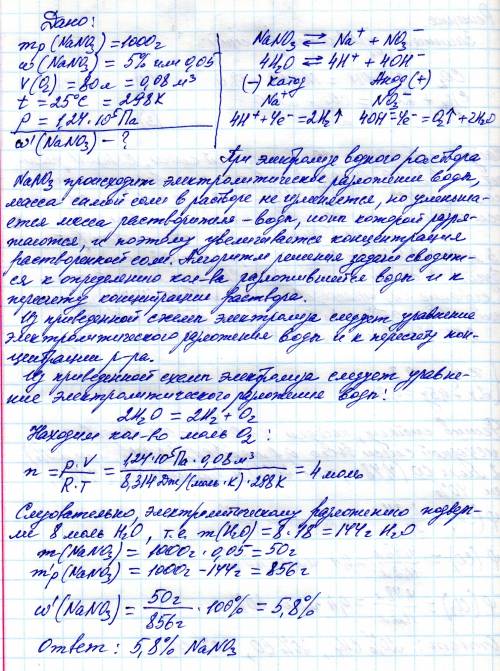 Дано:
mр(NaNO₃) = 1000г
ω(NaNO₃) = 5% или 0,05
V(O₂) = 80л = 0,08 м³
t = 25°C = 298K
P = 1,24·10⁵Па
ω'(NaNO₃) – ?
NaNO₃ ⇄ Na⁺ + NO₃⁻
4H₂O ⇄ 4H⁺ + 4OH⁻
(–) Катод Анод (+)
Na⁺ NO₃⁻
4H⁺+4e⁻=2H₂↑ 4OH⁻-4e⁻=O₂↑+2H₂O
При электролизе водного раствора
NaNO₃ происходит электролитическое разложение воды,
масса самой соли в растворе не изменяется, но уменьша-
ется масса растворителя – воды, ионы которой разря-
жаются, и поэтому увеличивается концентрация
растворенной соли. Алгоритм решения задачи сводит-
ся к определению кол-ва разложившейся воды и к
пересчету концентрации раствора.
Из приведенной схемы электролиза следует уравнение
электролитического разложения воды и к пересчету кон-
центрации р-ра.
Из приведенной схемы электролиза следует уравне-
ние электролитического разложения воды:
2H₂O = 2H₂ + O₂
Находим кол-во моль O₂:
n = P·V / R·T = 1,24·10⁵Па · 0,08 м³ / 8,314Дж/(моль·K)·298K = 4 моль
Следовательно, электролитическому разложению подверг-
ли 8 моль H₂O, т.е. m(H₂O) = 8·18 = 144г H₂O
m(NaNO₃) = 1000г · 0,05 = 50г
m'р(NaNO₃) = 1000г – 144г = 856г
ω'(NaNO₃) = 50г / 856г · 100% = 5,8%
Ответ: 5,8% NaNO₃